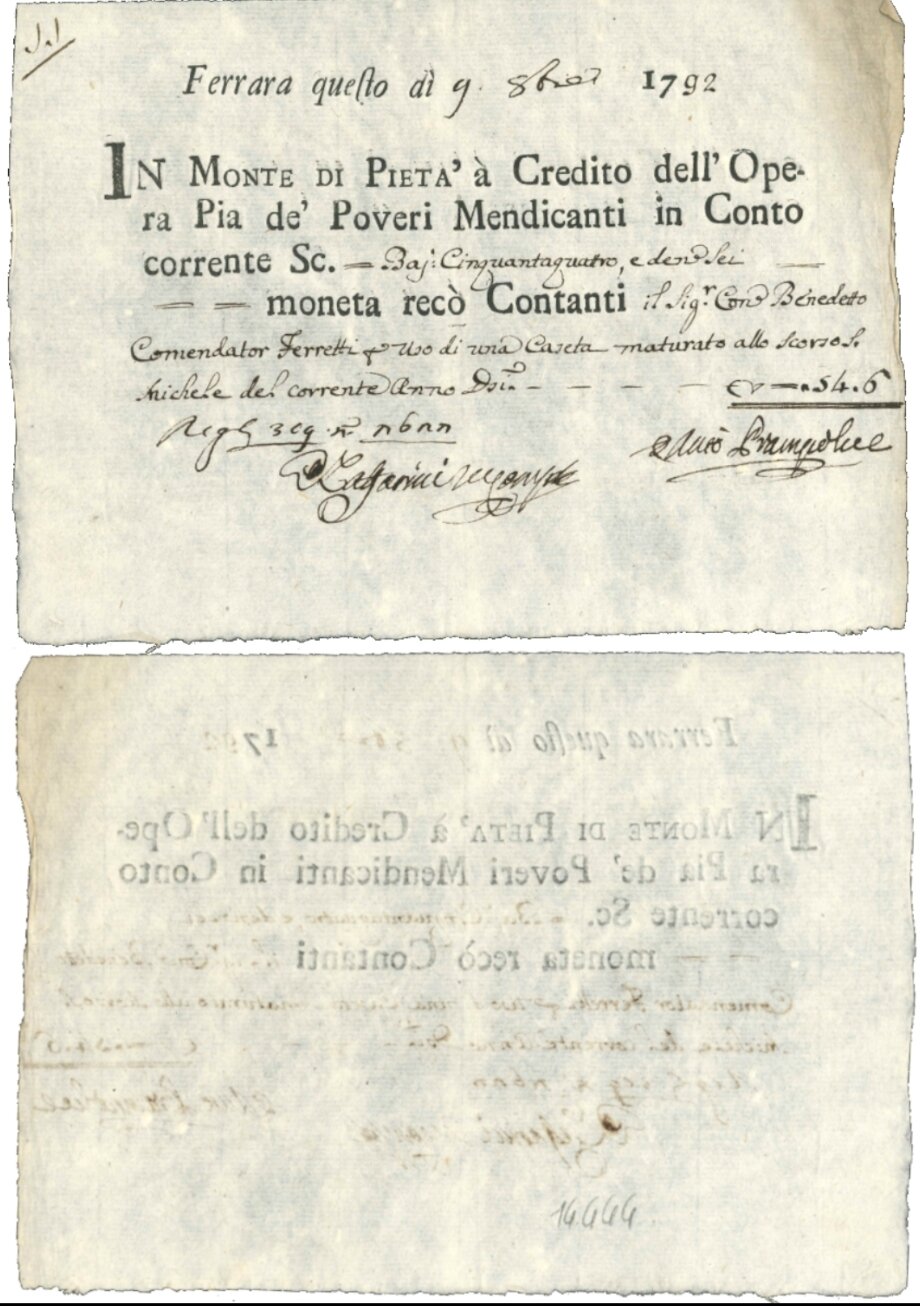 Ferrara queſto dì 9. 8bre 1792
IN MONTE DI PIETA' à Credito dell' Ope-
ra Pia de' Poveri Mendicanti in Conto
corrente Sc. — Baj: Cinquantaquatro, e den: Sei —
— — moneta recò Contanti il Sigr Con: Benedetto
Comendator Ferretti uso di una Caseta maturato allo scorso S.
Michele del corrente Anno — — — — 54.6
14444